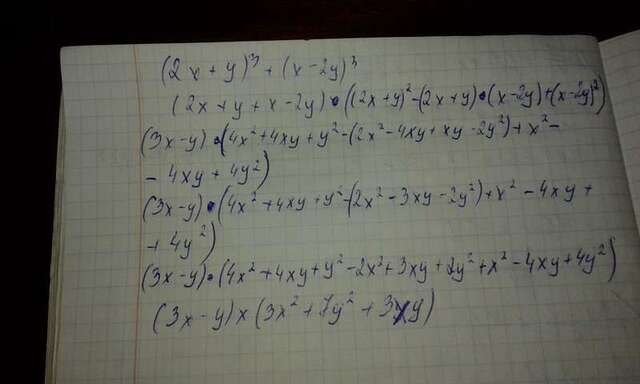 (2x + y)³ + (x - 2y)³
(2x + y + x - 2y) • ((2x+y)² - (2x + y) • (x - 2y) + (x - 2y)²)
(3x - y) • (4x² + 4xy + y² - (2x² - 4xy + xy - 2y²) + x² -
- 4xy + 4y²)
(3x - y) • (4x² + 4xy + y² - (2x² - 3xy - 2y²) + x² - 4xy +
+ 4y²)
(3x - y) • (4x² + 4xy + y² - 2x² + 3xy + 2y² + x² - 4xy + 4y²)
(3x - y) x (3x² + 7y² + 3xy)